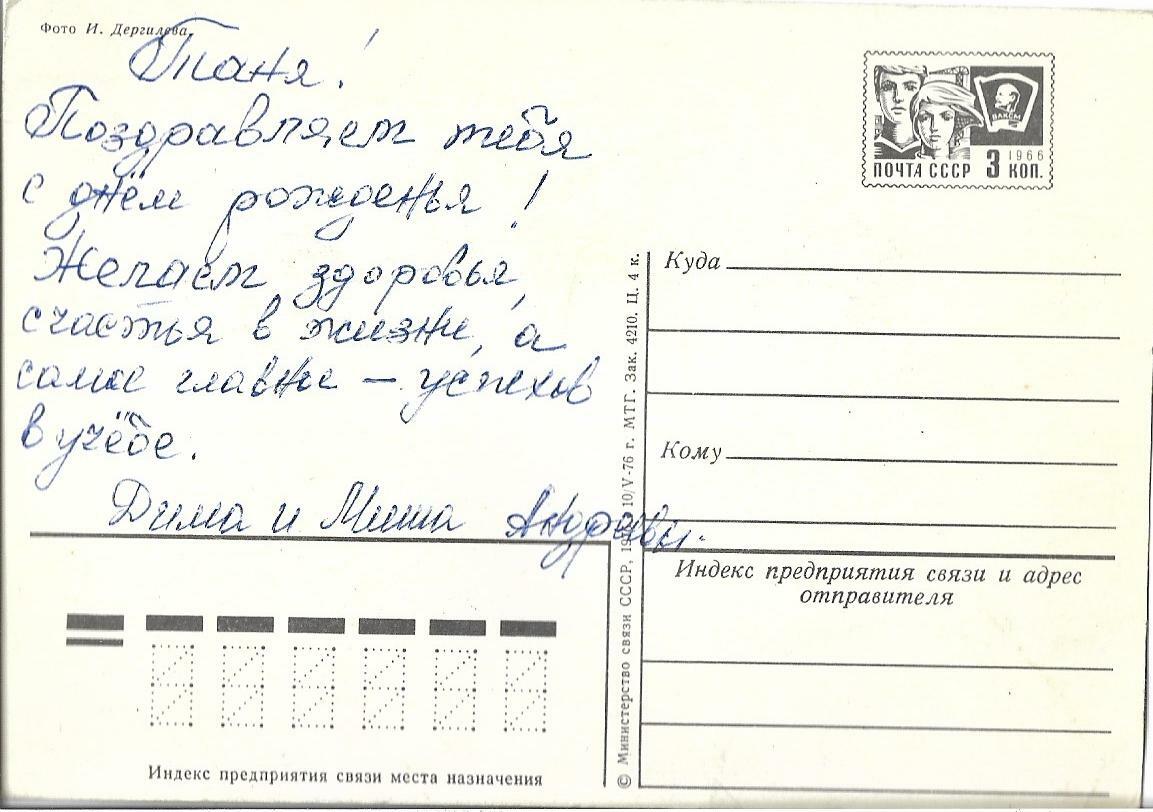 Фото И. Дергилева
Таня!
Поздравляем тебя
с днём рожденья!
Желаем здоровья,
счастья в жизни, а
самое главное — успехов
в учёбе.
Дима и Миша Андреевы.
ВЛКСМ
1966
ПОЧТА СССР 3 КОП.
Куда
Кому
Индекс предприятия связи и адрес
отправителя
© Министерство связи СССР, 10/V-76 г. МТГ. Зак. 4210. Ц. 4 к.
Индекс предприятия связи места назначения